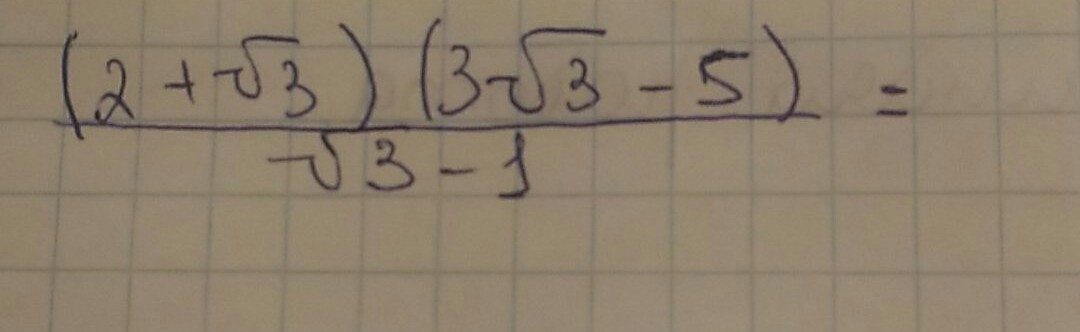 (2 + √3) (3√3 - 5) =
√3 - 1